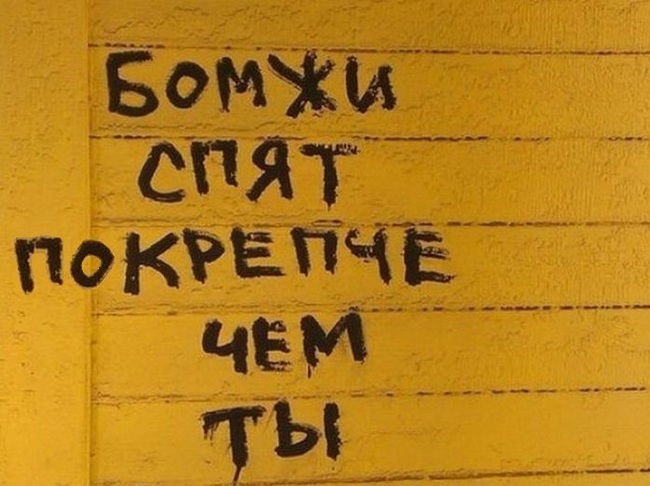 БОМЖИ
СПЯТ
ПОКРЕПЧЕ
ЧЕМ
ТЫ